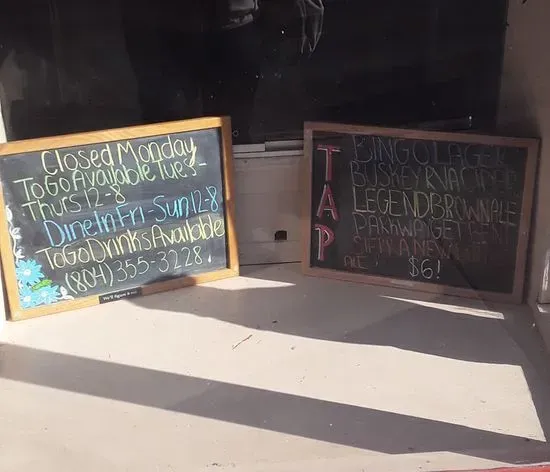 Closed Monday
To Go Available Tues-
Thurs 12-8
Dine In Fri-Sun 12-8
To Go Drinks Available
(804)355-3228!
TAP
BINGO LAGER
BUSKEY RVA CIDER
LEGEND BROWN ALE
PARKWAY GET BENT
ALE
$6!